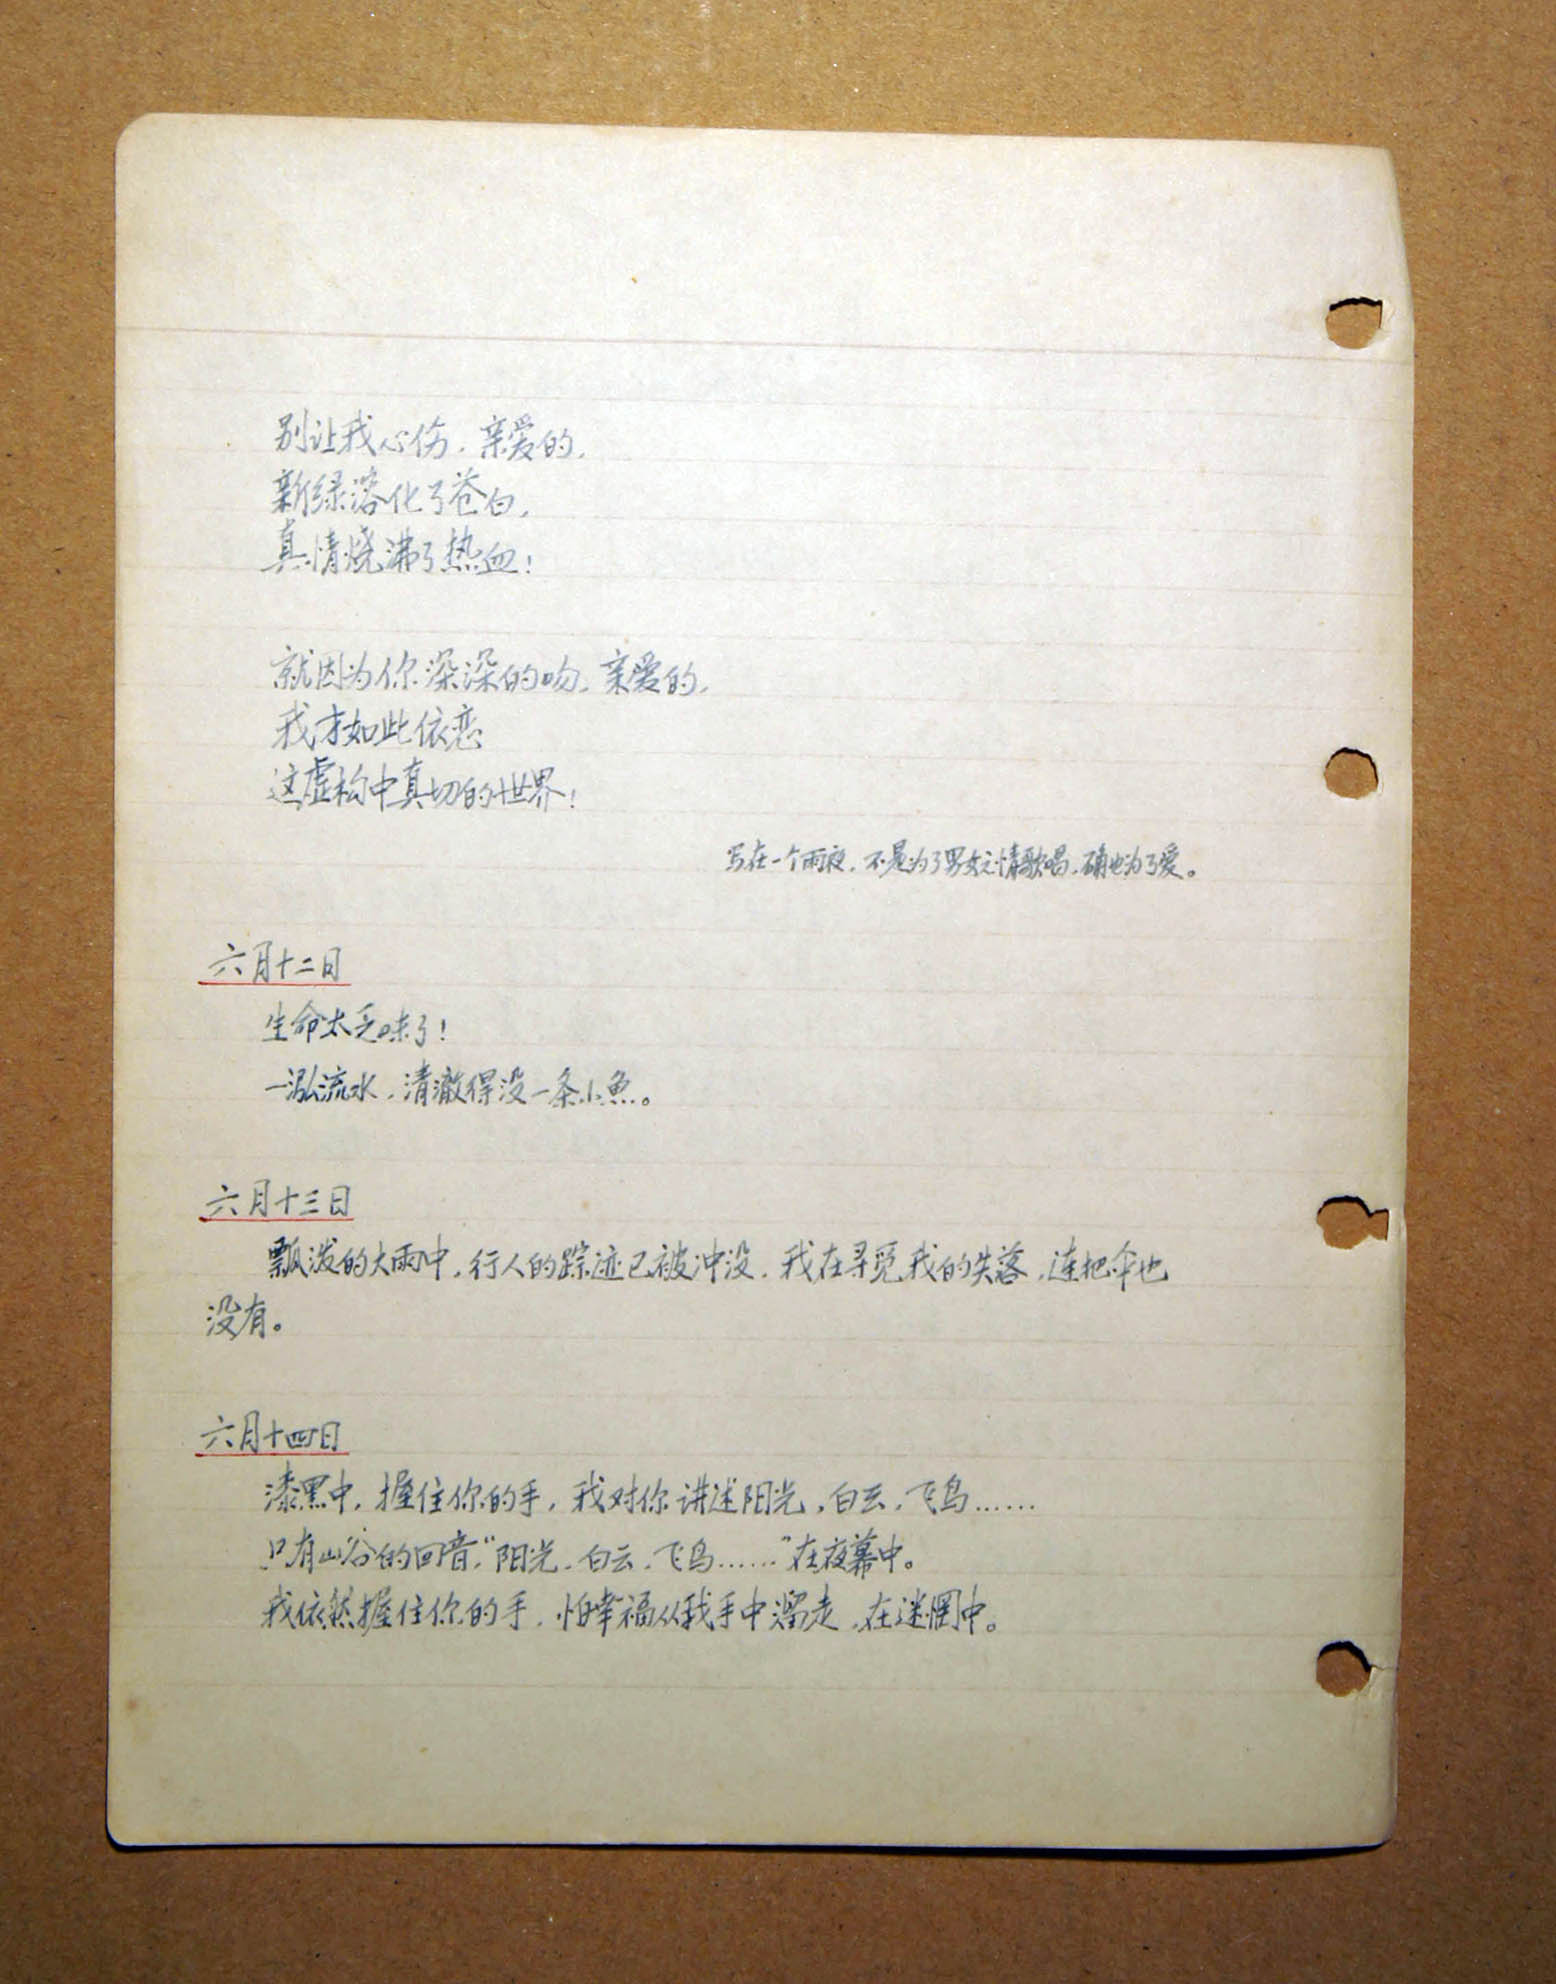 别让我心伤，亲爱的，
新绿溶化了苍白，
真情烧沸了热血！
就因为你深深的吻，亲爱的，
我才如此依恋
这虚构中真切的世界！
写在一个雨夜，不是为了男女之情歌唱，确也为了爱。
六月十二日
生命太乏味了！
一泓流水，清澈得没一条小鱼。
六月十三日
飘泼的大雨中，行人的踪迹已被冲没，我在寻觅我的失落，连把伞也
没有。
六月十四日
漆黑中，握住你的手，我对你讲述阳光，白云，飞鸟……
只有山谷的回音，“阳光，白云，飞鸟……”在夜幕中。
我依然握住你的手，怕幸福从我手中溜走，在迷惘中。